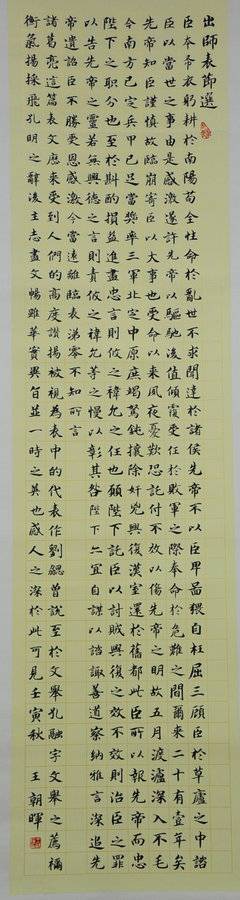 出師表節選
臣本布衣躬耕於南陽苟全性命於亂世不求聞達於諸侯先帝不以臣卑鄙猥自枉屈三顧臣於草廬之中諮
臣以當世之事由是感激遂許先帝以驅馳後值傾覆受任於敗軍之際奉命於危難之間爾來二十有壹年矣
先帝知臣謹慎故臨崩寄臣以大事也受命以來夙夜憂歎恐託付不效以傷先帝之明故五月渡瀘深入不毛
今南方已定兵甲已足當獎率三軍北定中原庶竭駑鈍攘除奸兇興復漢室還於舊都此臣所以報先帝而忠
陛下之職分也至於斟酌損益進盡忠言則攸之禕允之任也願陛下託臣以討賊興復之效不效則治臣之罪
以告先帝之靈若無興德之言則責攸之禕允等之慢以彰其咎陛下亦宜自謀以諮諏善道察納雅言深追先
帝遺詔臣不勝受恩感激今當遠離臨表涕零不知所言
諸葛亮這篇表文歷來受到人們的高度讚揚被視為表中的代表作劉勰曾說至於文舉孔融字文舉之薦禰
衡氣揚採飛孔明之辭後主志盡文暢雖華實異旨並一時之英也感人之深於此可見壬寅秋 王朝暉